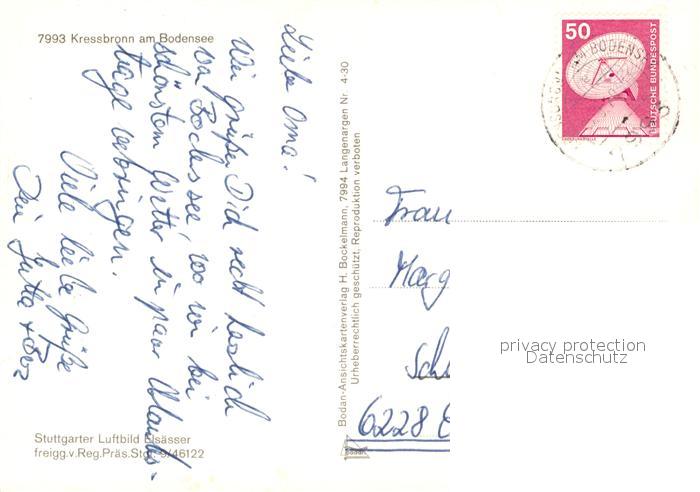 7993 Kressbronn am Bodensee
Liebe Oma!
Wir grüßen Dich recht herzlich
vom Bodensee, wo wir bei
schönstem Wetter ein paar Urlaubs-
tage verbringen.
Viele liebe Grüße
Dein Jutta +
Stuttgarter Luftbild Elsässer
freigg.v.Reg.Präs.Stgt. 9/46122
Bodan-Ansichtskartenverlag H. Bockelmann, 7994 Langenargen Nr. 4-30
Urheberrechtlich geschützt, Reproduktion verboten
50
DEUTSCHE BUNDESPOST
AM BODENS
Frau
Marg
Sch
6228 E
privacy protection
Datenschutz